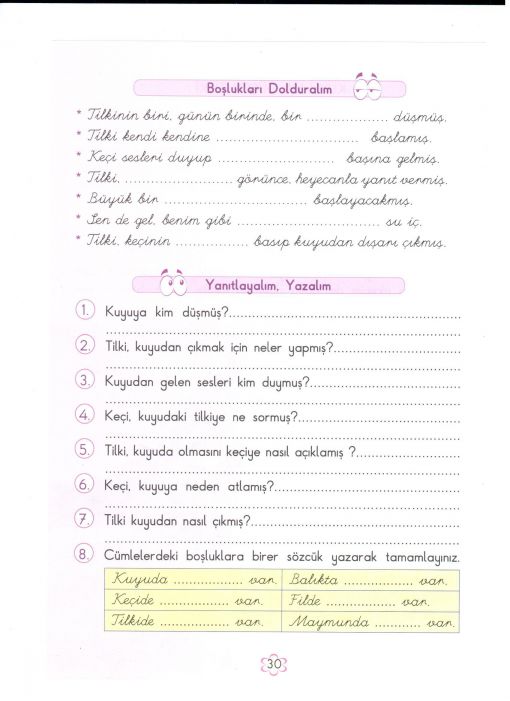 Boşlukları Dolduralım
* Tilkinin biri, günün birinde, bir .................. düşmüş.
* Tilki kendi kendine ................................ başlamış.
* Keçi sesleri duyup ............................ başına gelmiş.
* Tilki, ........................ görünce, heyecanla yanıt vermiş.
* Büyük bir ................................ başlayacakmış.
* Sen de gel, benim gibi ................................ su iç.
* Tilki, keçinin ................ basıp kuyudan dışarı çıkmış.
Yanıtlayalım, Yazalım
1. Kuyuya kim düşmüş?......................................................
................................................................................
2. Tilki, kuyudan çıkmak için neler yapmış?..............................
................................................................................
3. Kuyudan gelen sesleri kim duymuş?...................................
................................................................................
4. Keçi, kuyudaki tilkiye ne sormuş?......................................
................................................................................
5. Tilki, kuyuda olmasını keçiye nasıl açıklamış ?........................
................................................................................
6. Keçi, kuyuya neden atlamış?...........................................
................................................................................
7. Tilki kuyudan nasıl çıkmış?................................................
................................................................................
8. Cümlelerdeki boşluklara birer sözcük yazarak tamamlayınız.
Kuyuda ................ var. Balıkta ................ var.
Keçide ................ var. Filde ................ var.
Tilkide ................ var. Maymunda .......... var.
30